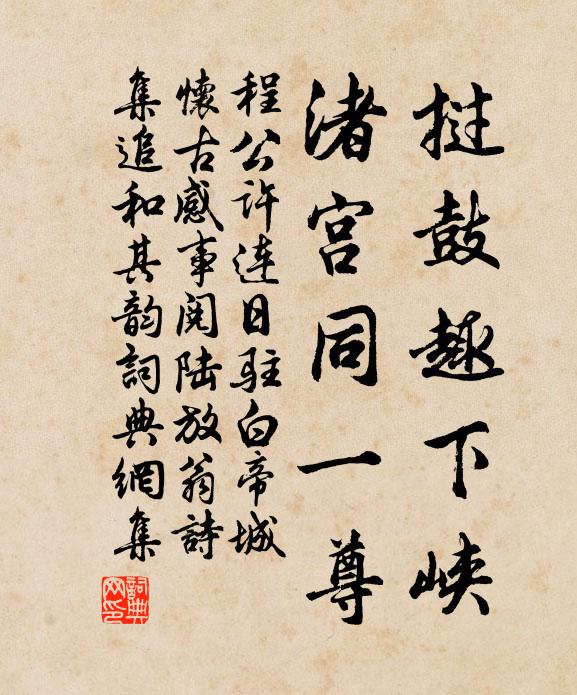 挝鼓趣下峡
渚宫同一尊
程公许连日驻白帝城
懷古感事阅陆放翁詩
集追和其韵詞典網集
詞典网印